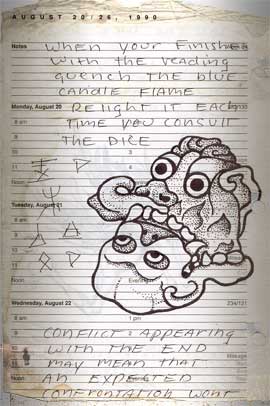 AUGUST 20/26, 1990
Notes
WHEN YOUR FINISHED
WITH THE READING
QUENCH THE BLUE
CANDLE FLAME
Monday, August 20
RELIGHT IT EACH
8 am
TIME YOU CONSULT
THE DICE
Noon
Tuesday, August 21
8 am
Noon
Evening
Wednesday, August 22
234/131
8 am
1 pm
CONFLICT APPEARING
WITH THE END
Mileage
MAY MEAN THAT
AN EXPECTED
Noon
CONFRONTATION WONT